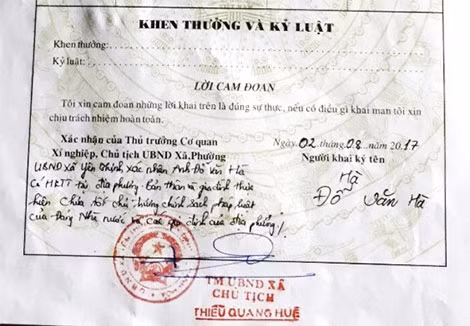 KHEN THƯỞNG VÀ KỶ LUẬT
Khen thưởng:
Kỷ luật:
LỜI CAM ĐOAN
Tôi xin cam đoan những lời khai trên là đúng sự thực, nếu có điều gì khai man tôi xin
chịu trách nhiệm hoàn toàn.
Xác nhận của Thủ trưởng Cơ quan
Xí nghiệp, Chủ tịch UBND Xã,Phường
Ngày 02 tháng 08 năm 2017
Người khai ký tên
UBND xã Yên Thịnh xác nhận Anh Đỗ Văn Hà
Có HKTT tại địa phương. Bản thân và gia đình thực
hiện chưa tốt chủ trương chính sách pháp luật
của Đảng Nhà nước và các quy định của địa phương
Hà
Đỗ Văn Hà
TM UBND XÃ
CHỦ TỊCH
THIỀU QUANG HUẾ